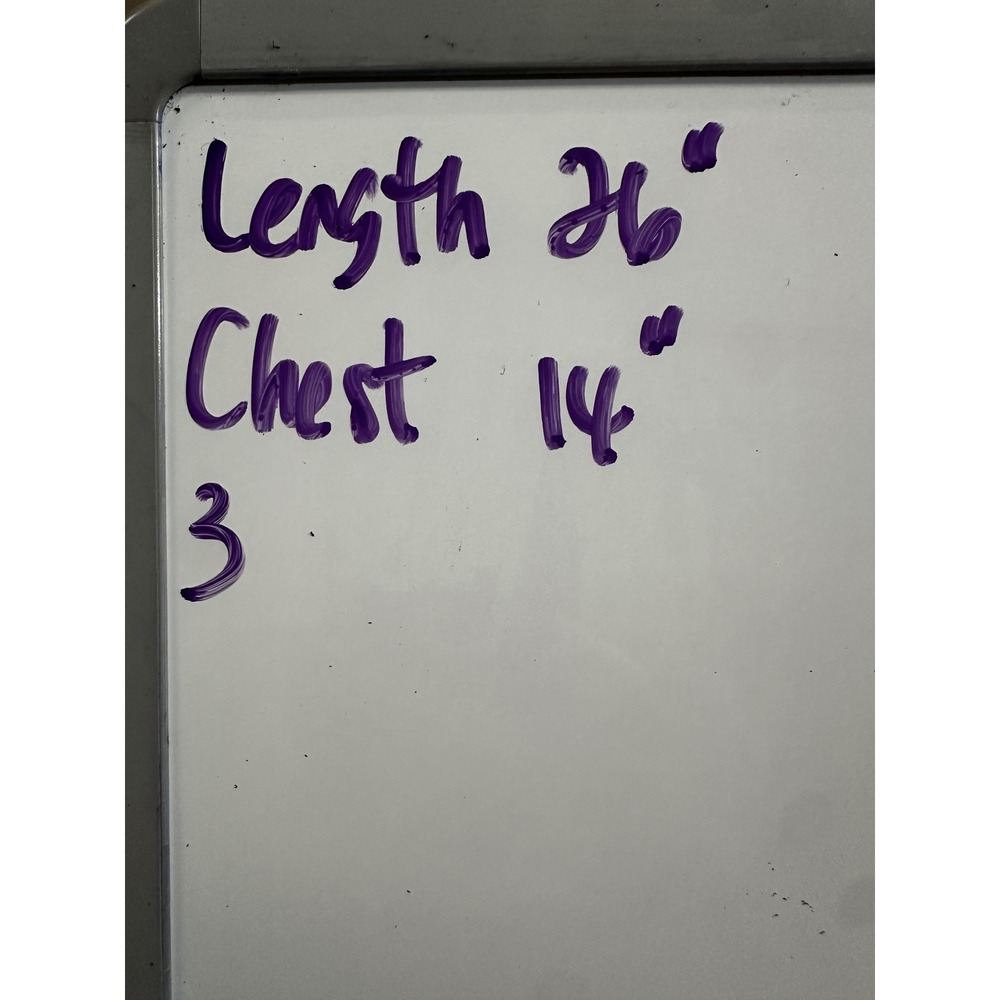 Length 26"
Chest 14"
3